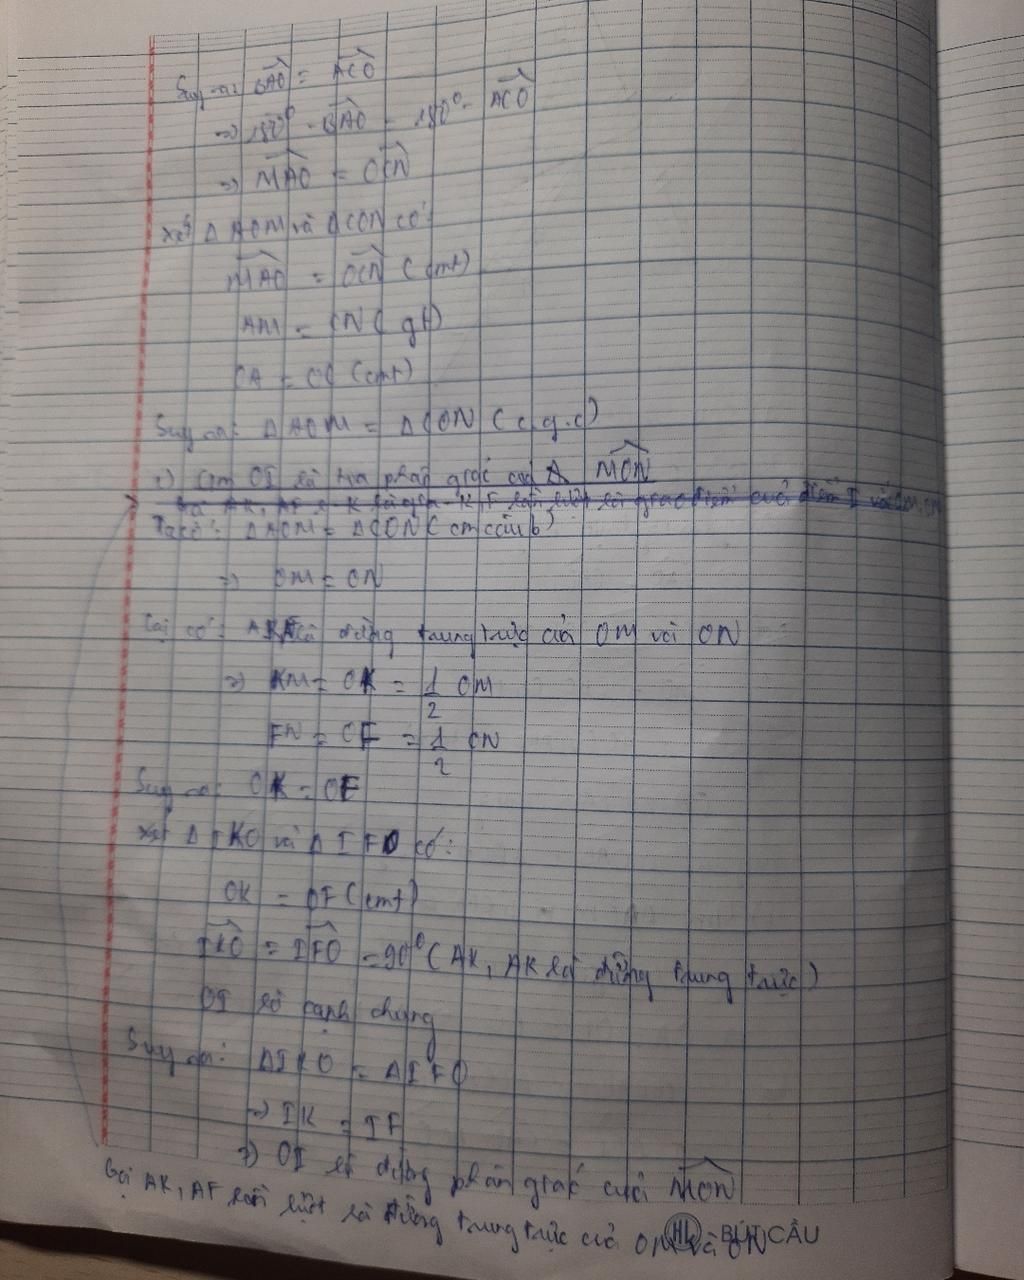 Suy ra: BAO = ACO
=> 180° - BAO = 180° - ACO
=> MAO = OCN
Xét Δ AOM và Δ CON có:
MAO = OCN (cmt)
AM = CN (gt)
OA = OC (cmt)
Suy ra: Δ AOM = Δ CON (c.g.c)
c) Cm OI là tia phân giác của MON
Ta có: Δ AOM = Δ CON (cm câu b)
=> OM = ON
Lại có: là đường trung trực của OM với ON
=> KM = OK = 1/2 OM
FN = OF = 1/2 ON
Suy ra: OK = OF
Xét Δ IKO và Δ IFO có:
OK = OF (cmt)
IKO = IFO = 90° (AK, AK là đường trung trực)
OI là cạnh chung
Suy ra: Δ IKO = Δ IFO
=> IK = IF
=> OI là đường phân giác của MON
Gọi AK, AF lần lượt là đường trung trực của OM và ON
HL BÚT CẦU